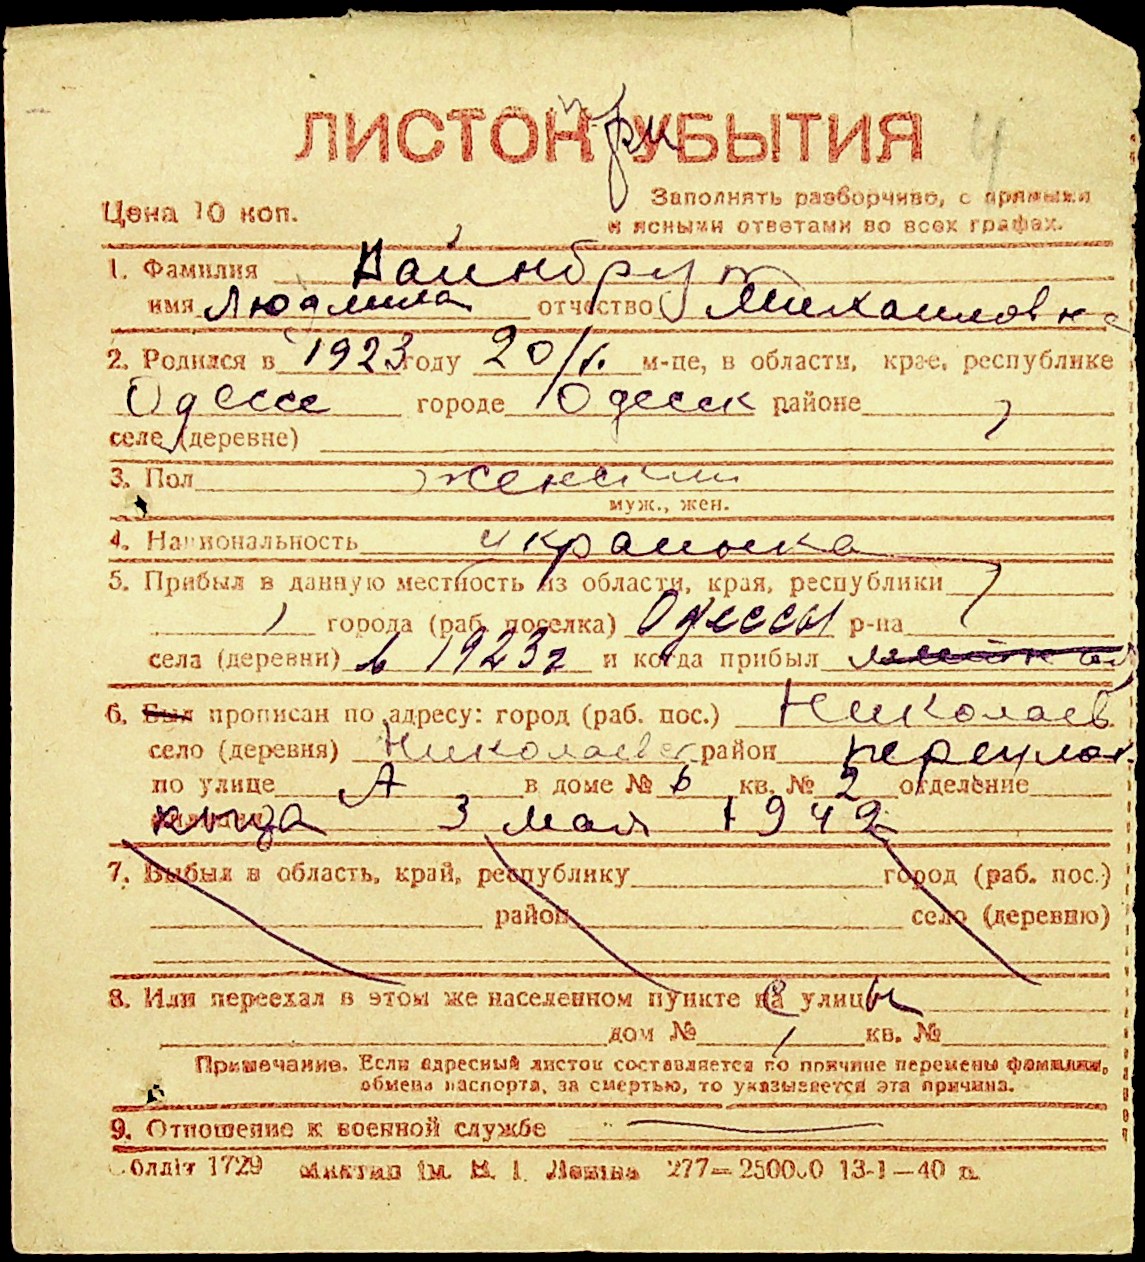 ЛИСТОК при УБЫТИЯ
4
Цена 10 коп.
Заполнять разборчиво, с прямыми
и ясными ответами во всех графах.
1. Фамилия Вайнбрут
имя Людмила отчество Михаиловна
2. Родился в 1923 году 20/X. м-це, в области, крае, республике
Одессе городе Одесск районе
селе (деревне)
3. Пол женский
муж., жен.
4. Национальность украинка
5. Прибыл в данную местность из области, края, республики
города (раб. поселка) Одессы р-на
села (деревни) в 1923 г и когда прибыл
6. Был прописан по адресу: город (раб. пос.) Николаев
село (деревня) Николаевск район
по улице А в доме № 6 кв. № 2 отделение
3 мая 1942
7. Выбыл в область, край, республику город (раб. пос.)
район село (деревню)
8. Или переехал в этом же населенном пункте с улицы
дом № кв. №
Примечание. Если адресный листок составляется по причине перемены фамилии,
обмена паспорта, за смертью, то указывается эта причина.
9. Отношение к военной службе
Облліт 1729 ім. В. І. Леніна 277—250000 13-1—40 р.